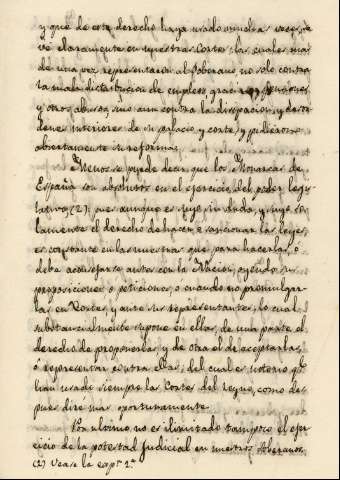 y qué de este derecho haya usado muchas veces, se
vé claramente en nuestras Cortes: las cuales mas
de una vez representaron al Soberano, no solo contra
la mala distribucion de empleos, gracias y pensiones
y otros abusos, sino aun contra la disipacion, y desor
denes interiores de su palacio, y corte, y pidieron
abiertamente su reforma.
Menos se puede decir que los Monarcas de
España son absolutos en el ejercicio del poder legis
lativo (2): pues aunque es suyo sin duda, y suyo so
lamente el derecho de hacer, ó sancionar las leyes,
es constante en las nuestras que para hacerlas, ó
debe aconsejarse antes con la Nacion, oyendo sus
proposiciones ó peticiones, ó cuando no promulgar
las en Cortes, y ante sus representantes, lo cual
substancialmente supone en ellas, de una parte el
derecho de proponerlas, y de otra el de aceptarlas,
ó representar contra ellas; del cual es notorio qe
han usado siempre las Cortes del Reyno, como des
pues diré mas oportunamente.
Por ultimo no es ilimitado tampoco el ejer
cicio de la potestad Judicial en nuestros Soberanos
(2) Vease la expn 2ª